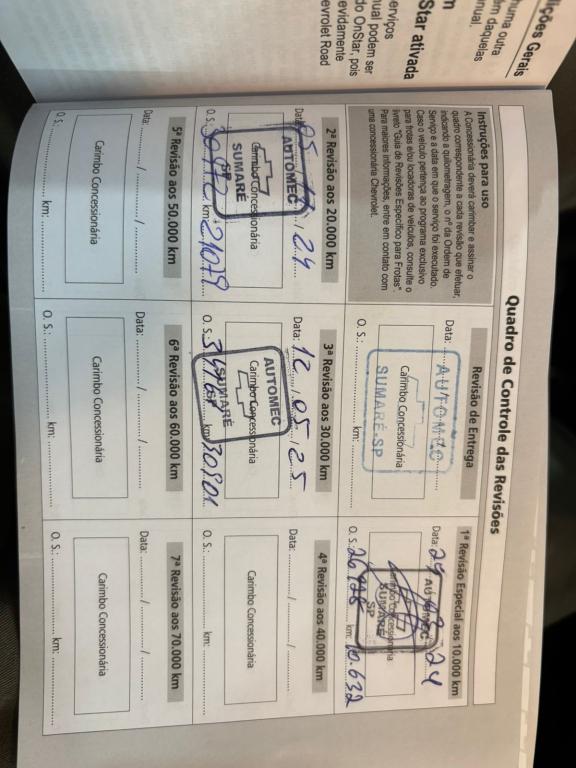 lições Gerais
huma outra
m daquelas
nual.
m
Star ativada
erviços
ual podem ser
do OnStar, pois
evidamente
evrolet Road
Quadro de Controle das Revisões
Instruções para uso
A Concessionária deverá carimbar e assinar o
quadro correspondente a cada revisão que efetuar,
indicando a quilometragem, o nº da Ordem de
Serviço e a data em que o serviço foi executado.
Caso o veículo pertença ao programa exclusivo
para frotas e/ou locadoras de veículos, consulte o
livreto "Guia de Revisões Específico para Frotas".
Para maiores informações, entre em contato com
uma concessionária Chevrolet.
Revisão de Entrega
Data:
AUTOMEC
Carimbo Concessionária
SUMARÉ-SP
O. S.: km:
1ª Revisão Especial aos 10.000 km
Data: 24
AUTOMEC
Carimbo Concessionária
SUMARÉ
SP
O. S. km: 10.632
2ª Revisão aos 20.000 km
Data: 24
AUTOMEC
Carimbo Concessionária
SUMARÉ
SP
O. S. km: 21079
3ª Revisão aos 30.000 km
Data: 12 / 05 / 25
AUTOMEC
Carimbo Concessionária
SUMARÉ
O. S. km: 30.801
4ª Revisão aos 40.000 km
Data: / /
Carimbo Concessionária
O. S.: km:
5ª Revisão aos 50.000 km
Data: / /
Carimbo Concessionária
O. S.: km:
6ª Revisão aos 60.000 km
Data: / /
Carimbo Concessionária
O. S.: km:
7ª Revisão aos 70.000 km
Data: / /
Carimbo Concessionária
O. S.: km: